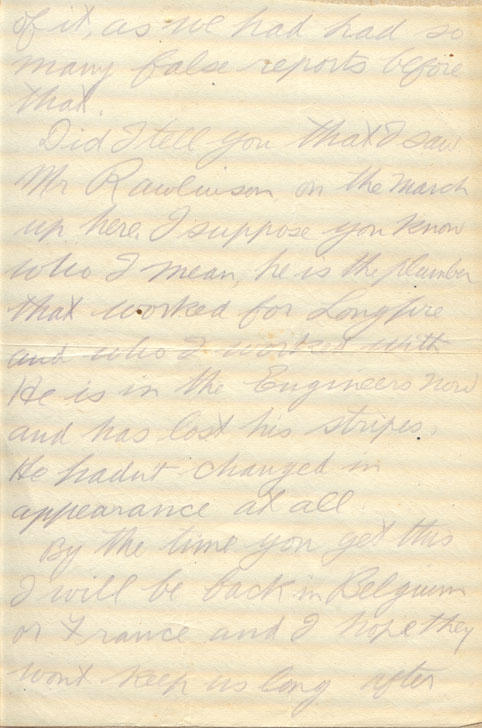 of it, as we had had so
many false reports before
that.
Did I tell you that I saw
Mr Rawlinson on the march
up here. I suppose you know
who I mean, he is the plumber
that worked for Longfire
and who I worked with
He is in the Engineers now
and has lost his stripes.
He hadnt changed in
appearance at all
By the time you get this
I will be back in Belgium
or France and I hope they
wont keep us long after